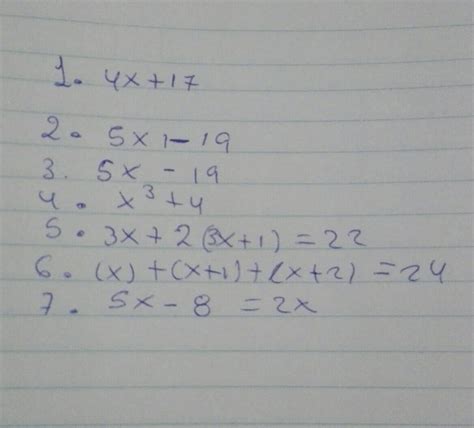 1. 4x+17
2. 5x1-19
3. 5x - 19
4. x³+4
5. 3x+2(3x+1) =22
6. (x)+(x+1)+(x+2) =24
7. 5x-8 =2x